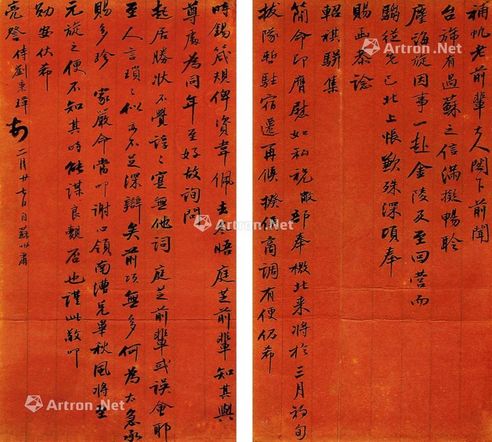 補帆老前輩大人閣下前聞
台旆有過蘇之信滿擬暢聆
麈誨旋因事一赴金陵及至回營而
騶從先已北上悵歉殊深頃奉
賜畫恭諗
軺祺駢集
簡命即膺慰如私祝敝部奉檄北來將於三月初旬
拔隊暫駐宿遷再候撥信商調有便仍希
時錫箴規俾資韋佩去晤庭芝前輩知其與
尊處為同年至好故詢問
起居勝狀不覺諠諠宜無他詞庭芝前輩或誤會耶
至人言瑣瑣似不足深辯矣前項無多何為太急承
賜多珍家嚴命當叩謝心領南漕兌畢秋風將至
元旋之便不知其時能謀良覿否也謹此敬叩
勛安伏希
亮詧 侍劉秉璋 二月廿七日蘇州肅
Artron.Net
Artron.Net
Artron.Net
Artron.Net
Artron.Net
Artron.Net